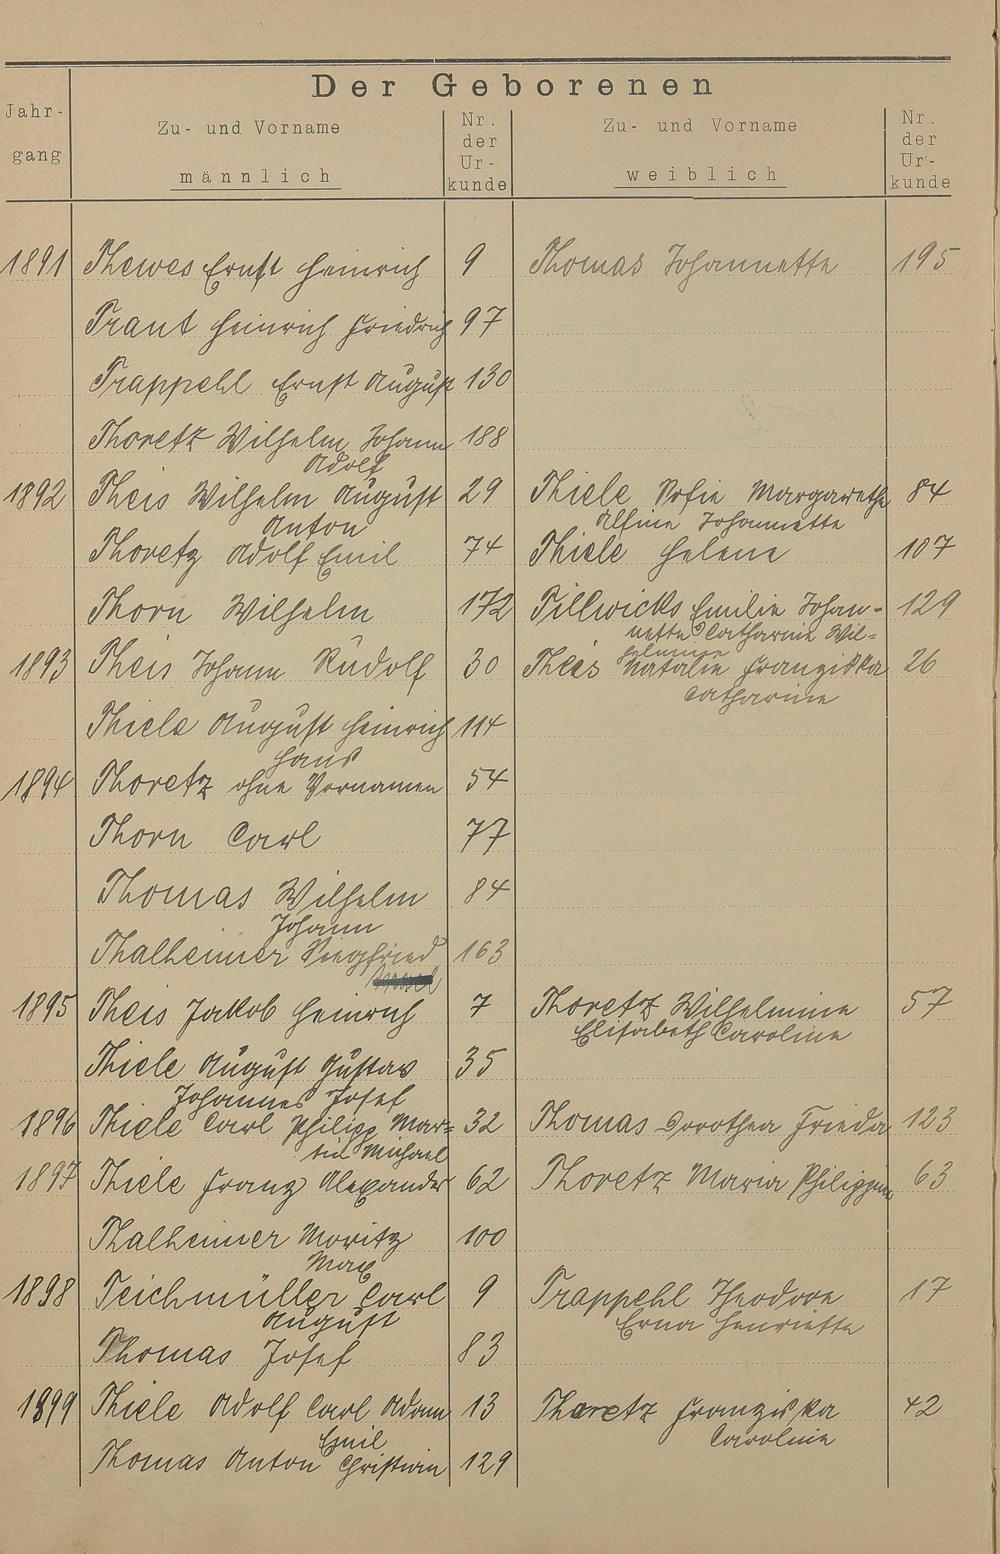 Der Geborenen
Jahr-
gang
Zu- und Vorname
männlich
Nr.
der
Ur-
kunde
Zu- und Vorname
weiblich
Nr.
der
Ur-
kunde
1891 Thewes Ernst Heinrich 9 Thomas Johannette 195
Traut Heinrich Friedrich 97
Trappehl Ernst August 130
Thoretz Wilhelm Johann 188
Adolf
1892 Theis Wilhelm August 29 Thiele Sofie Margarethe 84
Anton Alfine Johannette
Thoretz Adolf Emil 74 Thiele Helene 107
Thorn Wilhelm 172 Tillwicks Emilie Johan- 129
nette Catharine Wil=
helmine
1893 Theis Johann Rudolf 30 Theis Natalie Franziska 26
Catharine
Thiele August Heinrich 114
Hans
1894 Thoretz ohne Vornamen 54
Thorn Carl 77
Thomas Wilhelm 84
Johann
Thalheimer Siegfried 163
1895 Theis Jakob Heinrich 7 Thoretz Wilhelmine 57
Elisabeth Caroline
Thiele August Gustav 35
Johannes Josef
1896 Thiele Carl Philipp Mar= 32 Thomas Dorothea Frieda 123
tin Michael
1897 Thiele Franz Alexander 62 Thoretz Maria Philippine 63
Thalheimer Moritz 100
Max
1898 Teichmüller Carl 9 Trappehl Theodore 17
August Erna Henriette
Thomas Josef 83
1899 Thiele Adolf Carl Adam 13 Thoretz Franziska 42
Emil Caroline
Thomas Anton Christian 129